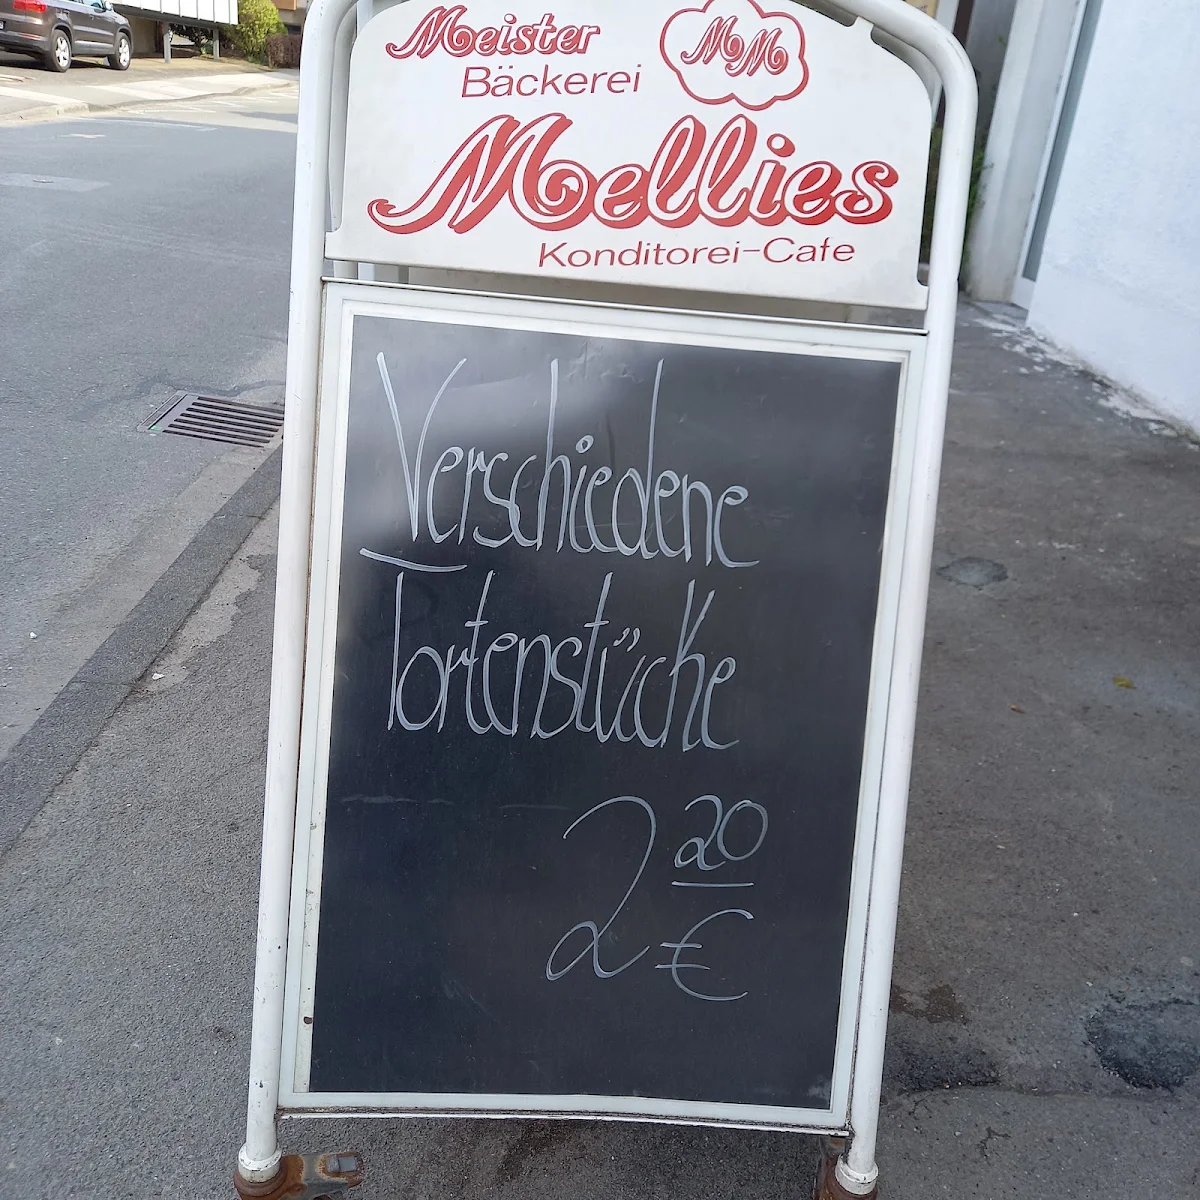 Meister
Bäckerei
MM
Mellies
Konditorei-Cafe
Verschiedene
Tortenstücke
2 20
€